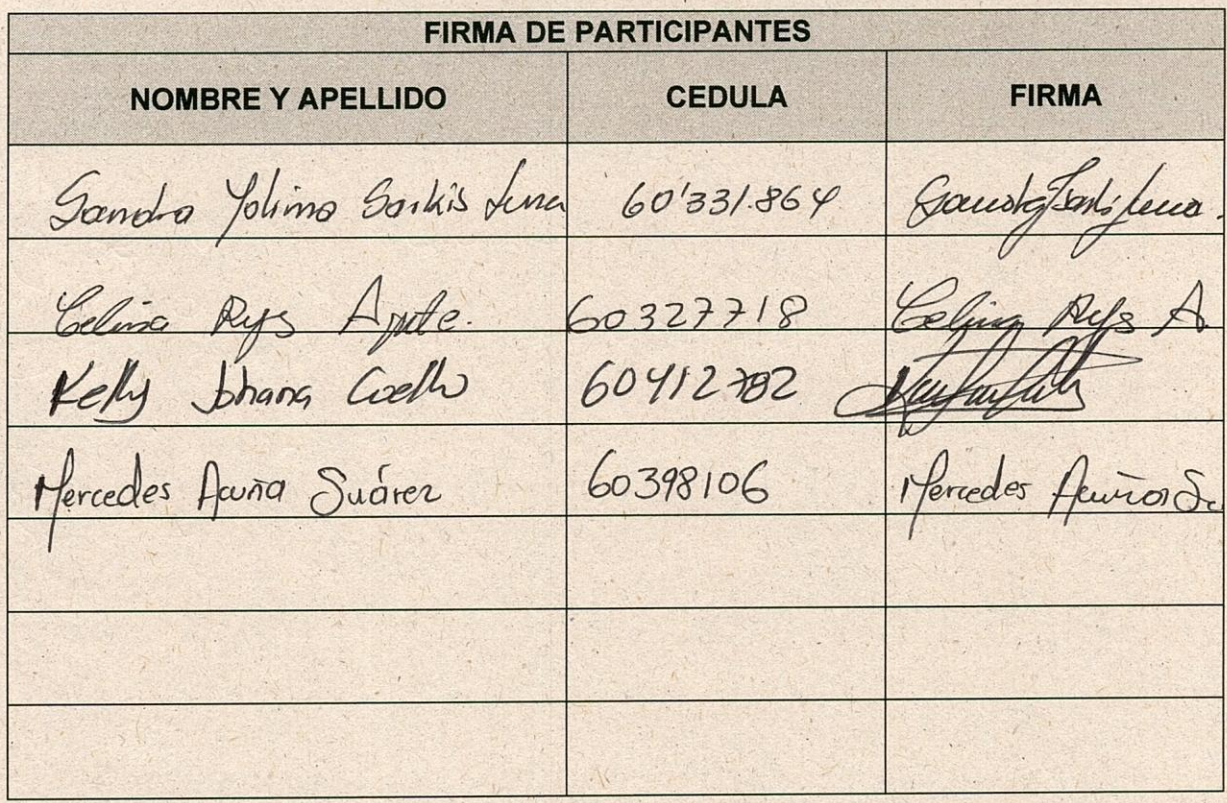 FIRMA DE PARTICIPANTES
NOMBRE Y APELLIDO CEDULA FIRMA
Sandra Yolima Sarkis Luna 60'331.864 Luna.
Celina Rys 60327718 Celina Rys A.
Kelly Johana Coelho 60412782
Mercedes Acuña Suárez 60398106 Mercedes Acuña S.